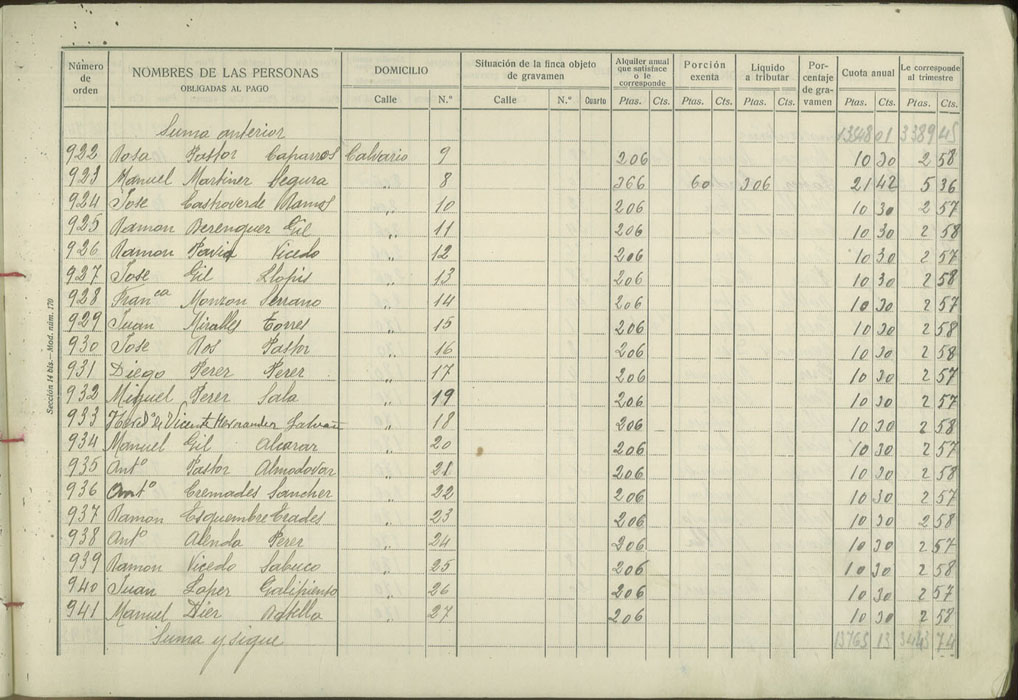 Sección 14 bis.—Mod. núm. 170
Número de orden NOMBRES DE LAS PERSONAS OBLIGADAS AL PAGO DOMICILIO Situación de la finca objeto de gravamen Alquiler anual que satisface o le corresponde Porción exenta Líquido a tributar Porcentaje de gravamen Cuota anual Le corresponde al trimestre
Calle N.º Calle N.º Cuarto Ptas. Cts. Ptas. Cts. Ptas. Cts. Ptas. Cts. Ptas. Cts.
Suma anterior 13548 01 3389 45
922 Rosa Pastor Caparros Calvario 9 206 10 30 2 58
923 Manuel Martiner Segura " 8 366 60 306 21 42 5 36
924 Jose Castroverde Ramos " 10 206 10 30 2 57
925 Ramon Berenguer Gil " 11 206 10 30 2 58
926 Ramon Vicedo " 12 206 10 30 2 57
927 Jose Gil Llopis " 13 206 10 30 2 58
928 Fran ca Monzon Serrano " 14 206 10 30 2 57
929 Juan Miralles Torres " 15 206 10 30 2 58
930 Jose Ros Pastor " 16 206 10 30 2 58
931 Diego Perer Perer " 17 206 10 30 2 57
932 Miguel Perer Sala " 19 206 10 30 2 57
933 Vicente Hernander " 18 206 10 30 2 58
934 Manuel Gil Alcarar " 20 206 10 30 2 57
935 Antº Pastor Almodovar " 21 206 10 30 2 58
936 Antº Cremades Sancher " 22 206 10 30 2 57
937 Ramon Esquembre Erades " 23 206 10 30 2 58
938 Antº Alenda Perer " 24 206 10 30 2 57
939 Ramon Vicedo Sabuco " 25 206 10 30 2 58
940 Juan Loper Galipienso " 26 206 10 30 2 57
941 Manuel Dier " 27 206 10 30 2 58
Suma y sigue 13765 13 3443 74